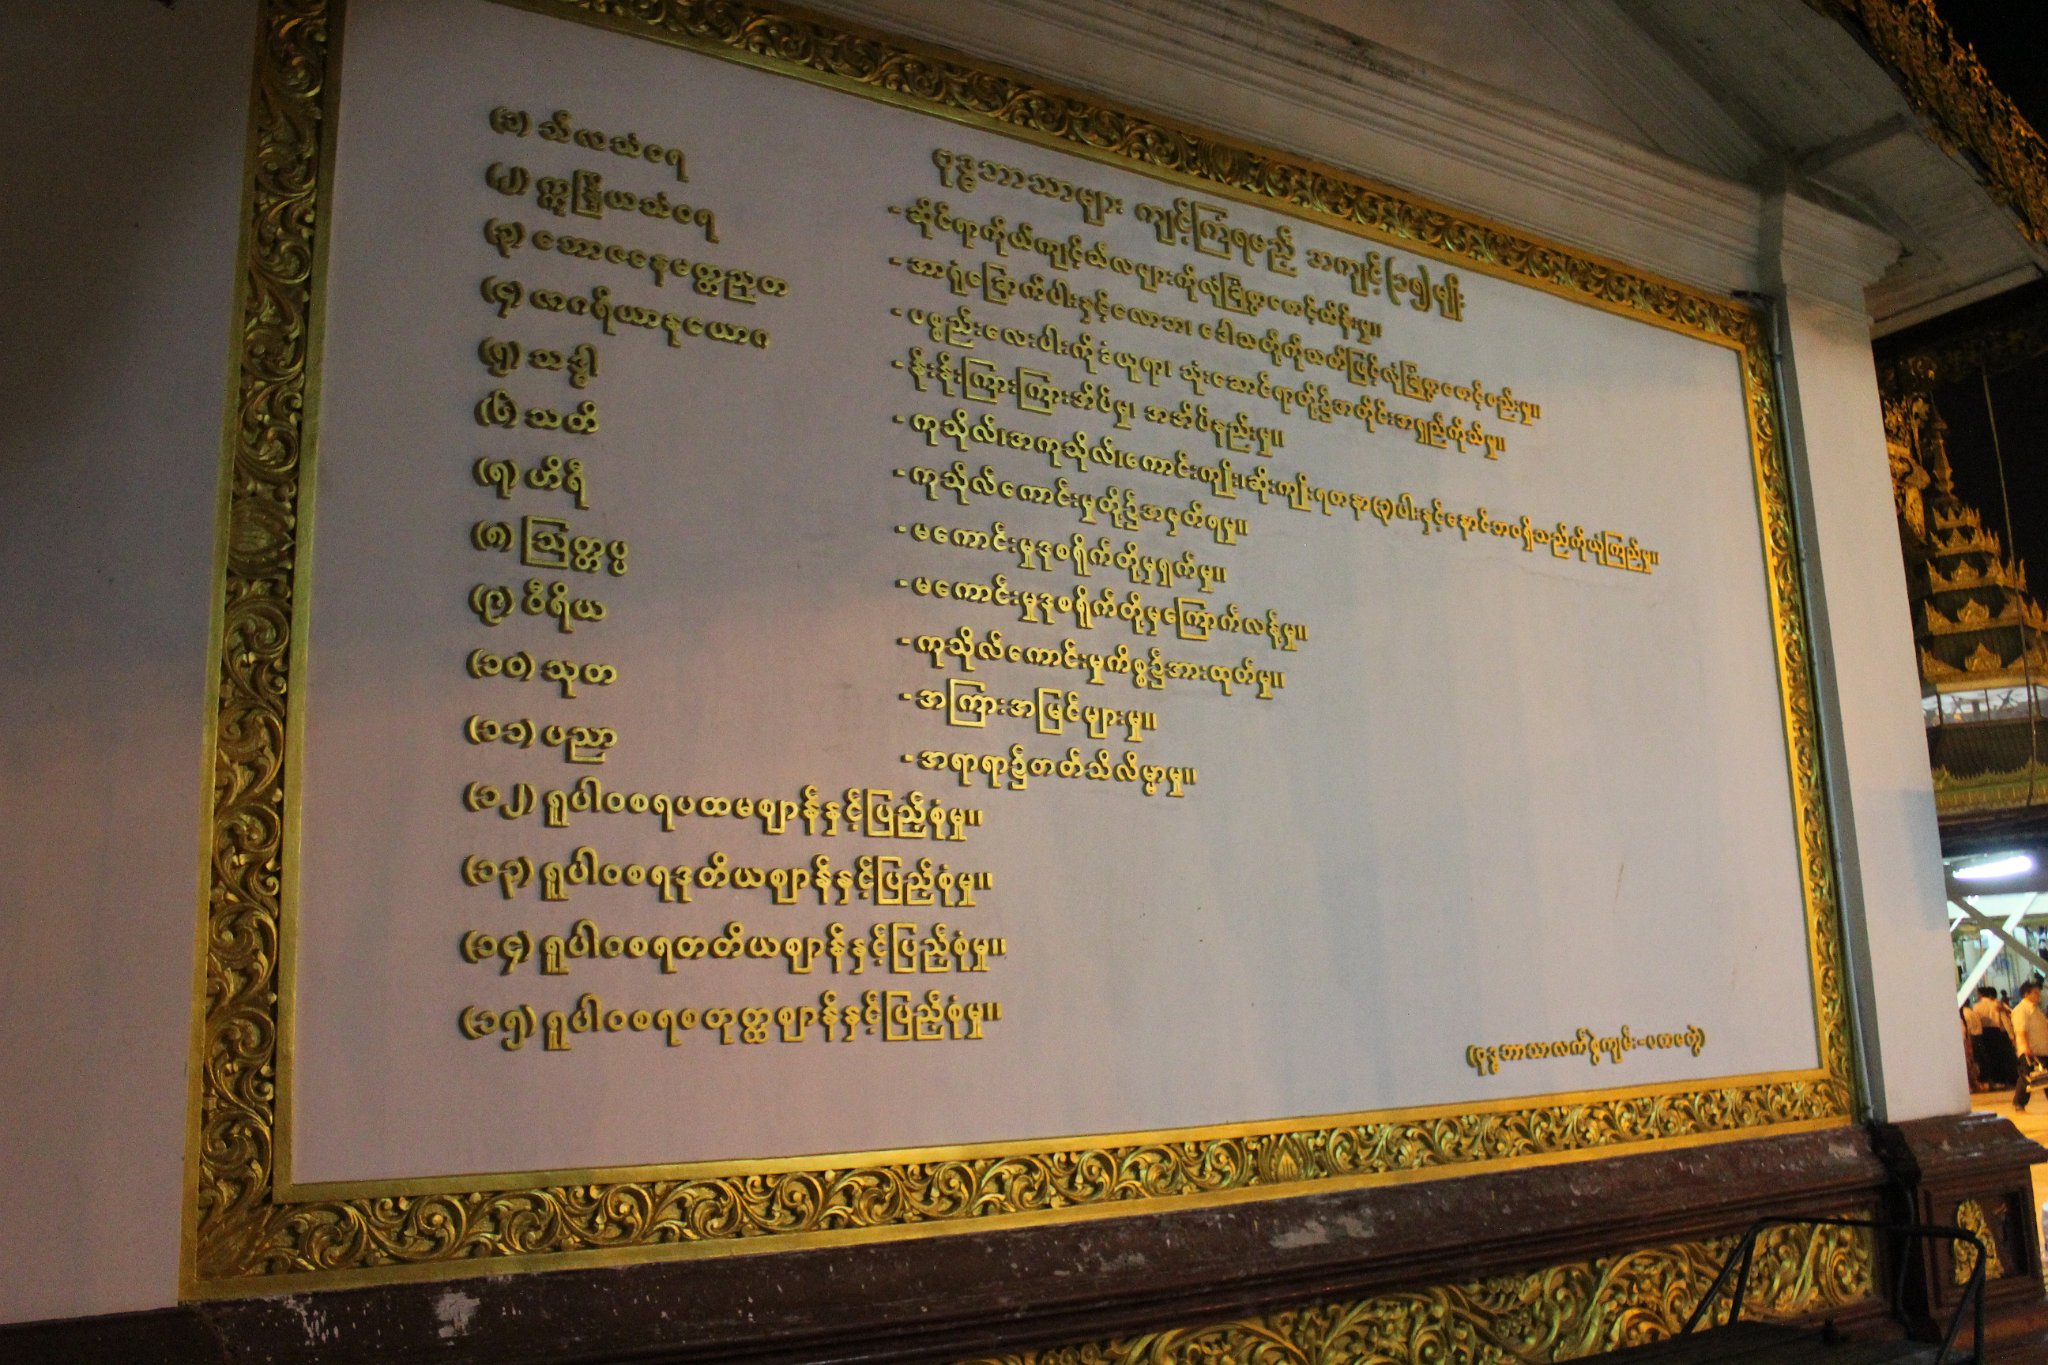 ဗုဒ္ဓဘာသာများ ကျင့်ကြံရမည့် အကျင့်(၁၅)မျိုး
(၁) သီလသံဝရ - ဆိုင်ရာကိုယ်ကျင့်သီလများကိုလုံခြုံစွာစောင့်ထိန်းမှု။
(၂) ဣန္ဒြိယသံဝရ - အာရုံခြောက်ပါးနှင့်လောဘ၊ ဒေါသတို့ကိုသတိဖြင့်လုံခြုံစွာစောင့်စည်းမှု။
(၃) ဘောဇနေမတ္တညုတ - ပစ္စည်းလေးပါးကိုခံယူရာ၊ သုံးဆောင်ရာတို့၌အတိုင်းအရှည်ကိုသိမှု။
(၄) ဇာဂရိယာနုယောဂ - နိုးနိုးကြားကြားအိပ်မှု၊ အအိပ်နည်းမှု။
(၅) သဒ္ဓါ - ကုသိုလ်၊အကုသိုလ်၊ကောင်းကျိုး၊ဆိုးကျိုး၊ရတနာ(၃)ပါးနှင့်နောင်ဘဝရှိသည်ကိုယုံကြည်မှု။
(၆) သတိ - ကုသိုလ်ကောင်းမှုတို့၌အမှတ်ရမှု။
(၇) ဟိရီ - မကောင်းမှုဒုစရိုက်တို့မှရှက်မှု။
(၈) ဩတ္တပ္ပ - မကောင်းမှုဒုစရိုက်တို့မှကြောက်လန့်မှု။
(၉) ဝီရိယ - ကုသိုလ်ကောင်းမှုကိစ္စ၌အားထုတ်မှု။
(၁၀) သုတ - အကြားအမြင်များမှု။
(၁၁) ပညာ - အရာရာ၌တတ်သိလိမ္မာမှု။
(၁၂) ရူပါဝစရပထမဈာန်နှင့်ပြည့်စုံမှု။
(၁၃) ရူပါဝစရဒုတိယဈာန်နှင့်ပြည့်စုံမှု။
(၁၄) ရူပါဝစရတတိယဈာန်နှင့်ပြည့်စုံမှု။
(၁၅) ရူပါဝစရစတုတ္ထဈာန်နှင့်ပြည့်စုံမှု။
(ဗုဒ္ဓဘာသာလက်စွဲကျမ်း-ပထမတွဲ)